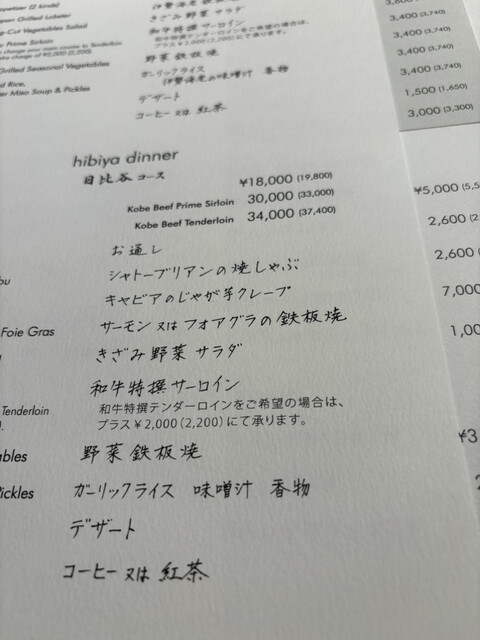 ppetizer (2 kinds)
Grilled Lobster
Cut Vegetables Salad
Prime Sirloin
change your main course to Tenderloin
charge of ¥2,000 (2,200)
Grilled Seasonal Vegetables
Rice,
Miso Soup & Pickles
きざみ野菜サラダ
和牛特撰サーロイン
和牛特撰テンダーロインをご希望の場合は、
プラス¥2,000(2,200)にて承ります。
野菜鉄板焼
ガーリックライス 伊勢海老の味噌汁 香物
デザート
コーヒー又は紅茶
3,400 (3,740)
3,400 (3,740)
3,400 (3,740)
3,400 (3,740)
1,500 (1,650)
3,000 (3,300)
hibiya dinner
日比谷コース
¥18,000 (19,800)
Kobe Beef Prime Sirloin 30,000 (33,000)
Kobe Beef Tenderloin 34,000 (37,400)
お通し
シャトーブリアンの焼しゃぶ
キャビアのじゃが芋クレープ
サーモン又はフォアグラの鉄板焼
きざみ野菜サラダ
和牛特撰サーロイン
和牛特撰テンダーロインをご希望の場合は、
プラス¥2,000(2,200)にて承ります。
野菜鉄板焼
ガーリックライス 味噌汁 香物
デザート
コーヒー又は紅茶
bu
Foie Gras
Tenderloin
ables
Pickles
¥5,000 (5,5
2,600 (2
2,600 (
7,000
1,00
¥3